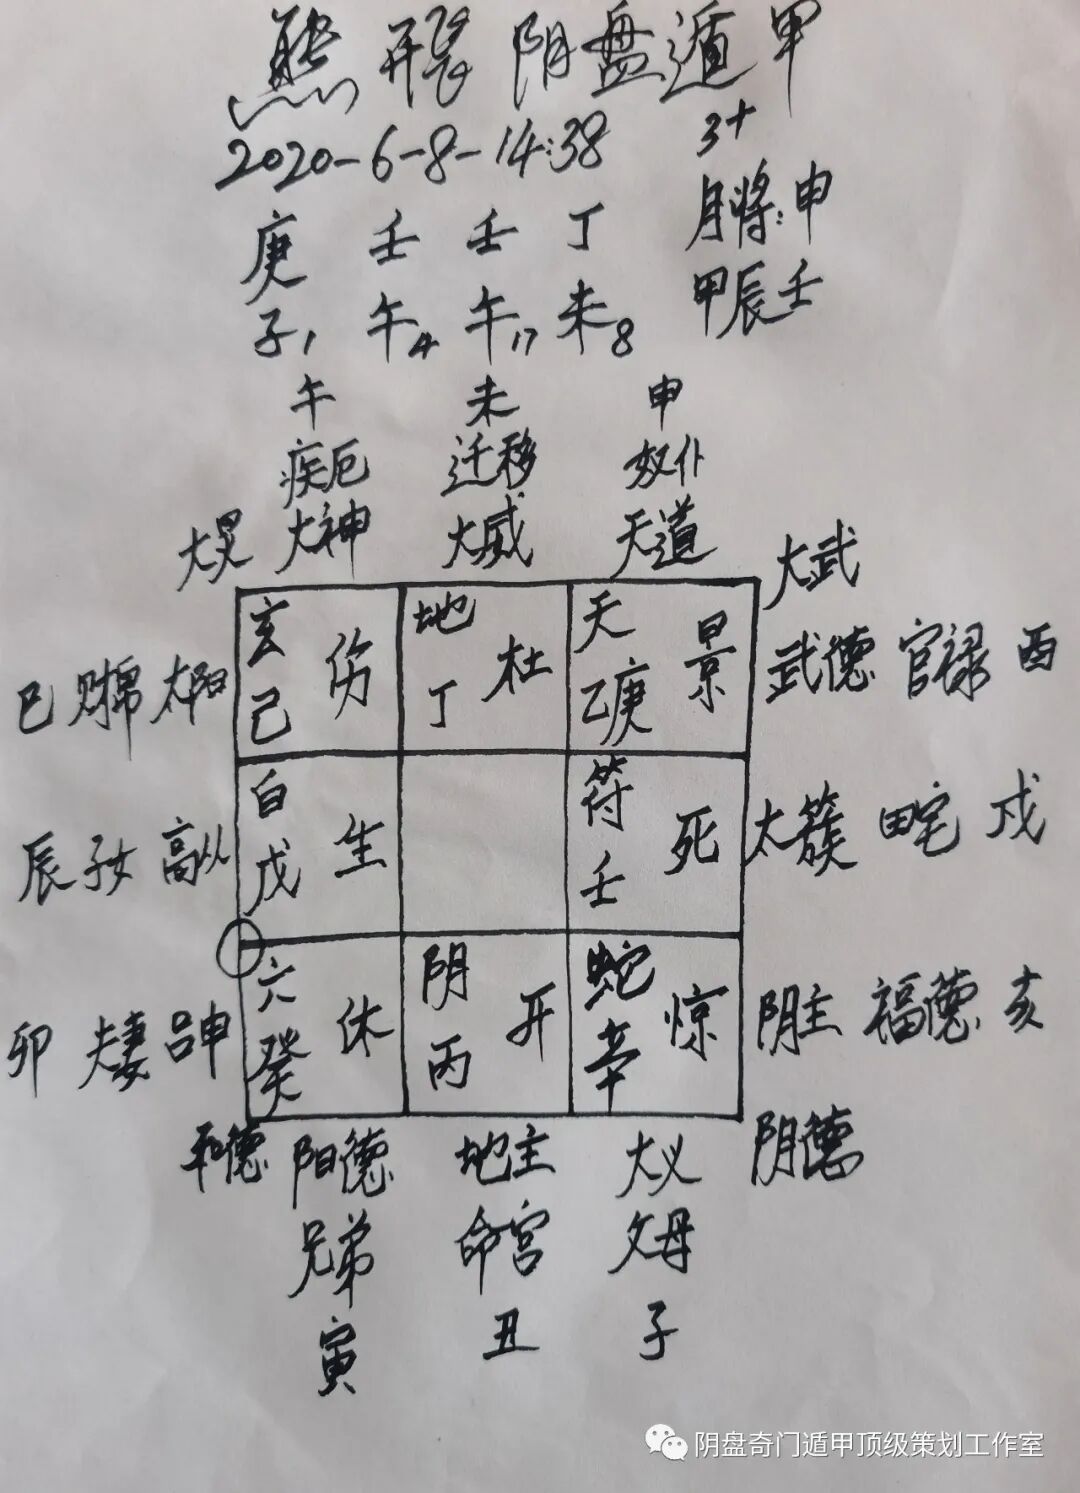 熊 裂 阴盘遁甲
2020-6-8-14:38 3+
月将:申
庚 壬 壬 丁
子1 午4 午17 未8
甲辰壬
午 未 申
疾厄 迁移 奴仆
大炅 大神 大威 天道 大武
玄 伤 地 杜 天 景
己 丁 乙庚
巳 财帛 太阳
武德 官禄 酉
白 生 符 死
戊 壬
辰 子女 高从
太簇 田宅 戌
六 休 阴 开 蛇 惊
癸 丙 辛
卯 夫妻 吕申
阴主 福德 亥
和德 阳德 地主 大义 阴德
兄弟 命宫 父母
寅 丑 子
阴盘奇门遁甲顶级策划工作室